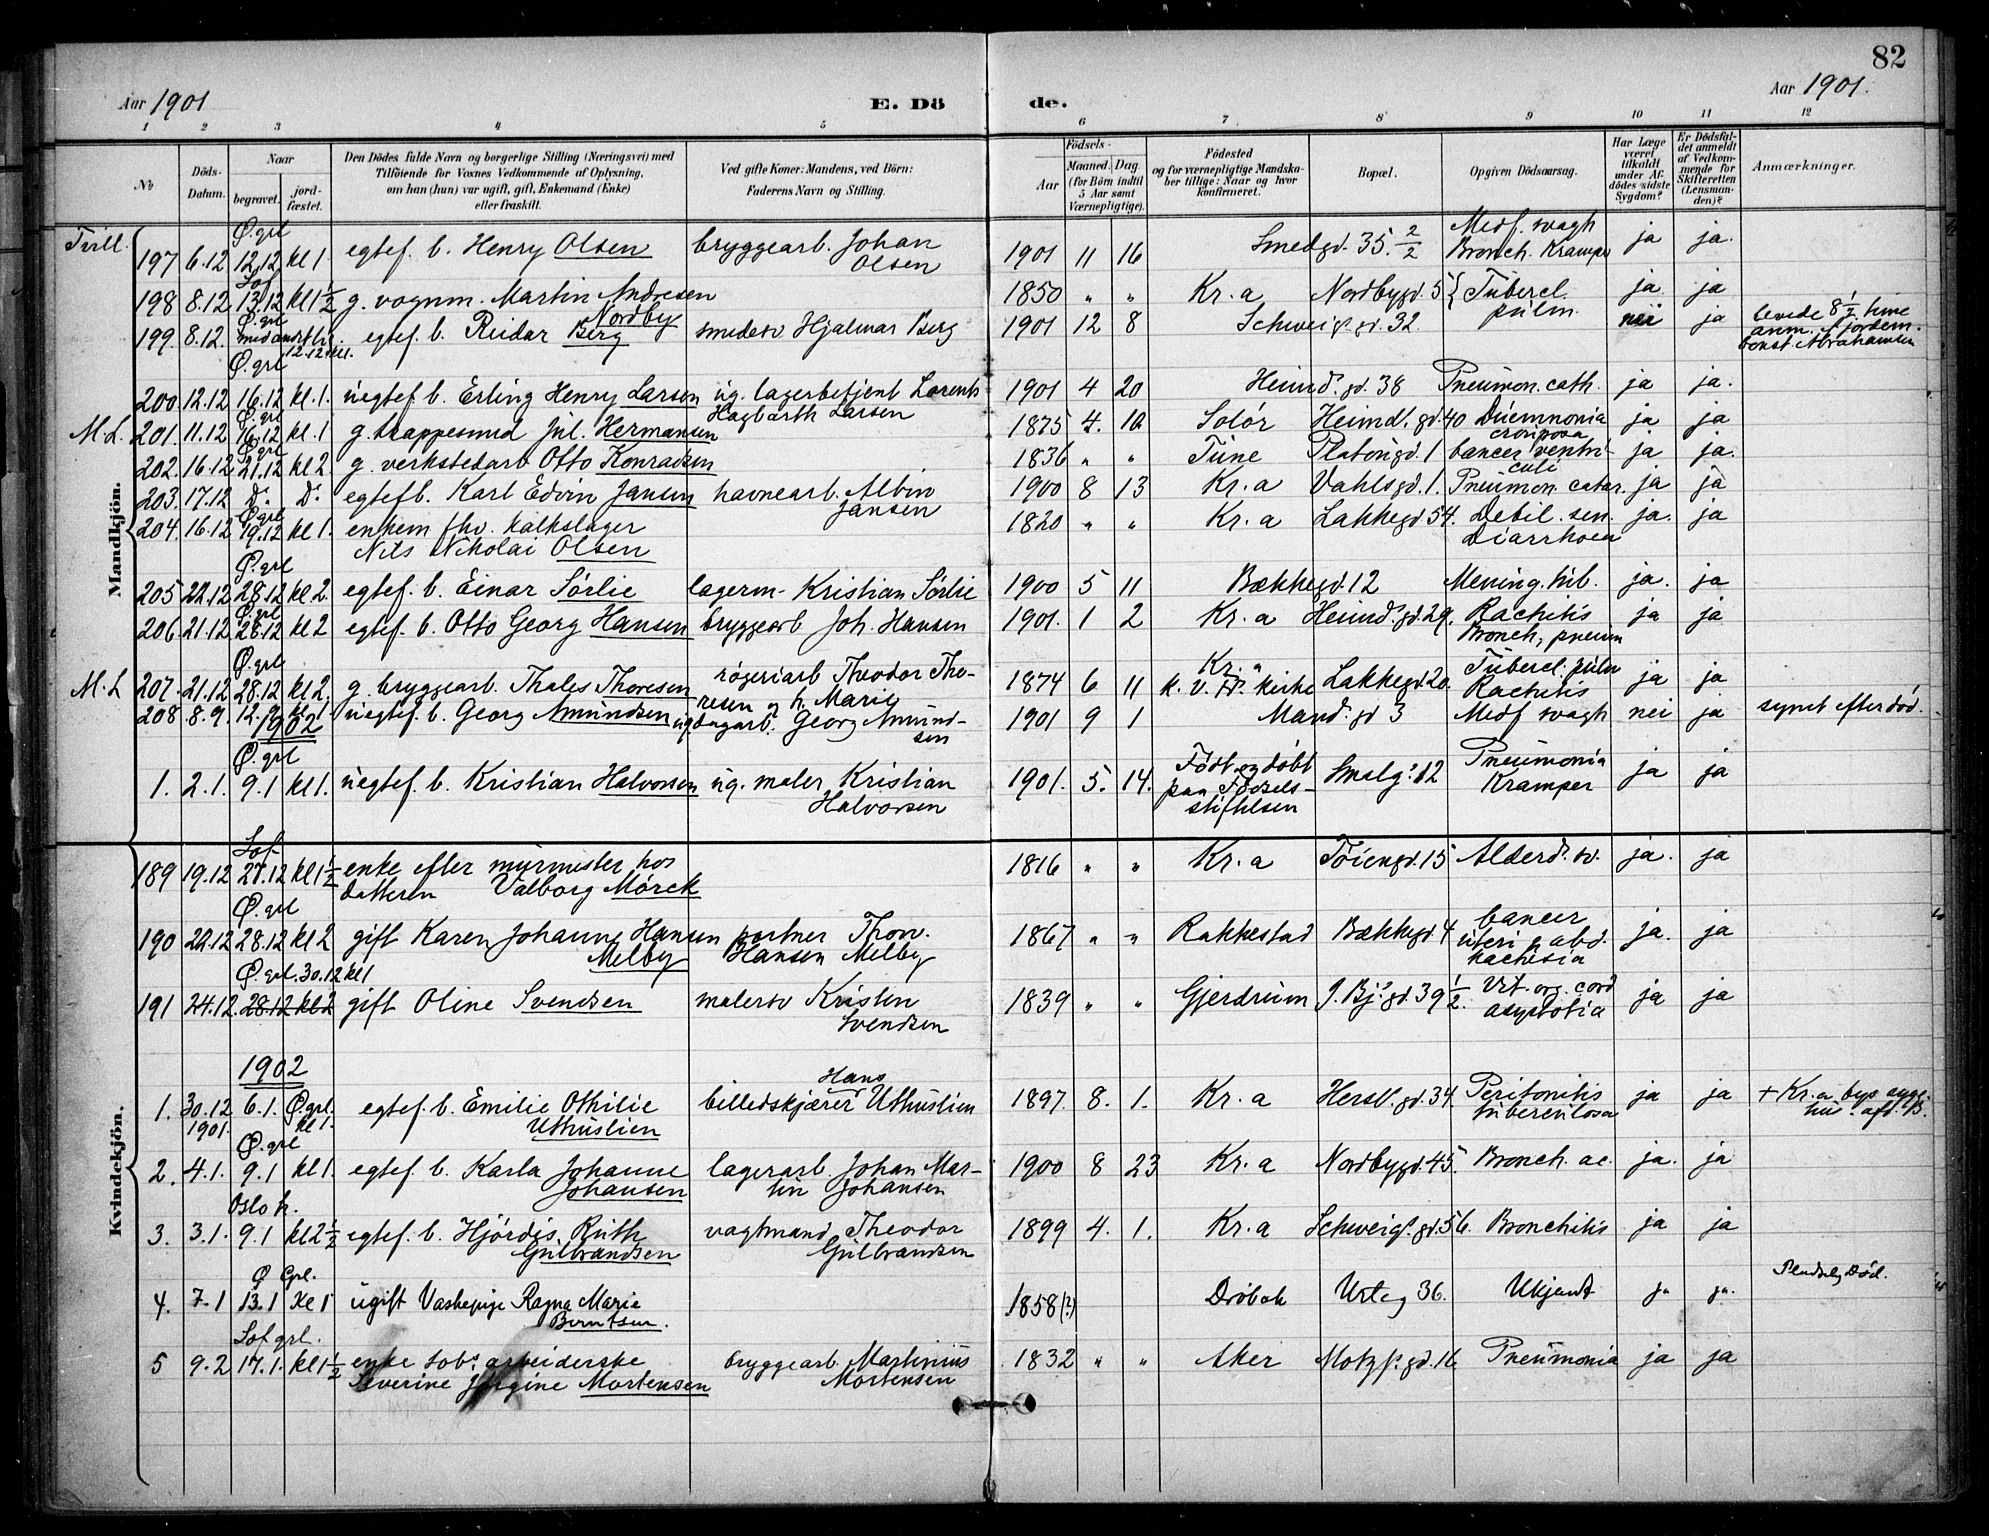 82
Aar 1901
E. Dö
de.
Aar 1901.
1 2 3 4 5 6 7 8 9 10 11 12
No
Döds-Datum.
Naar
begravet.
jord-fæstet.
Den Dödes fulde Navn og borgerlige Stilling (Næringsvei) med
Tilföiende for Voxnes Vedkommende af Oplysning,
om han (hun) var ugift, gift, Enkemand (Enke)
eller fraskilt.
Ved gifte Koner: Mandens, ved Börn:
Faderens Navn og Stilling.
Födsels-
Aar
Maaned. Dag
(for Börn indtil
5 Aar samt
Værnepligtige).
Födested
og for værnepligtige Mandska-
ber tillige: Naar og hvor
konfirmeret.
Bopæl.
Opgiven Dödsaarsag.
Har Læge
været
tilkaldt
under Af-
dödes sidste
Sygdom?
Er Dödsfal-
det anmeldt
af Vedkom-
mende for
Skifteretten
(Lensman-
den)?
Anmærkninger.
Mandkjön.
Tvill. Ø.grl Medf. svagh
197 6.12 12.12 kl 1. egtef. b. Henry Olsen bryggearb. Johan Olsen 1901 11 16 Smedgd. 35 2/2 Bronch. Kramper ja ja.
Sof.
198 8.12 13.12 kl 1 1/2 g. vognm. Martin Andresen Nordby 1850 " " Kr.a Nordbygd. 5 Tubercl. pulm. ja ja
Ø.grl
199. 8.12. med andet lig. 12.12 kl. egtef. b. Reidar Berg smedesv Hjalmar Berg 1901 12 8 Schweigs. gd. 32. nei ja levede 8 1/2 time
anm. af jordem.
Abrahamsen
Ø.grl
200 12.12 16.12 kl. 1. uegtef. b. Erling Henry Larsen ug. lagerbetjent Lorents Hagbarth Larsen 1901 4 20 Heimd. gd. 38 Pneumon. cath. ja ja.
Ø.grl
M.L. 201. 11.12 16.12 kl. 1 g. trappesmed Jul. Hermansen 1875 4. 10 Solör Heimdl. gd. 40 ja ja
Ø.grl
202. 16.12 21.12 kl 2. g. verkstedarb Otto Konradsen 1836 " " Tune Platougd. 1 cancer ventriculi ja ja.
203. 17.12 Do. Do. egtef b. Karl Edvin Jansen havnearb. Albin Jansen 1900 8 13 Kr.a Vahlsgd. 1. Pneumon. catar. ja ja
Ø.grl
204. 16.12 19.12 kl 1. enkem fhv. kalkslager
Nils Nikolai Olsen 1820 " " Kr.a Lakkegd 54. Debil. sen. Diarrhoea ja. ja
Ø.grl
205 22.12 28.12 kl 2. egtef. b. Einar Sörlie lagerm. Kristian Sörlie 1900 5 11 Bækkegd. 12 Mening. tub. ja. ja
Ø.grl
206 21.12 28.12 kl 2 egtef. b. Otto Georg Hansen bryggearb Joh. Hansen 1901. 1 2 Kr.a Heimd. gd. 29. Rachitis
Bronch, pneum ja ja
Ø.grl
M.L 207. 21.12 28.12 kl 2. g. bryggearb. Thales Thoresen rögeriarb Theodor Thoresen og h. Marie 1874 6 11 Kr.a
kirke Lakkegd 20. Tubercl. pulm
Rachitis ja ja
208. 8.9. 12.9. kl 1 uegtef. b. Georg Amundsen ug. Georg Amundsen 1901 9 1 Mand. gd 3 Medf svagh nei ja synet efter död.
1902
Ø.grl
1. 2.1. 9.1 kl 1. uegtef. b. Kristian Halvorsen ug. maler Kristian Halvorsen 1901. 5. 14. Födt og döbt
paa Födsels-
stiftelsen Smalg. 12 Pneumonia
Kramper ja ja
Kvindekjön.
Sof.
189 19.12 27.12 kl 1 1/2 enke efter murmester hos
datteren Valborg Mörck 1816 " " Kr.a Töiengd. 15 Alderd. sv. ja. ja
Ø.grl
190 22.12 28.12 kl 2 gift Karen Johanne Hansen Melby portner Thorv. Hansen Melby 1867 " " Rakkestad Bækkegd 4 cancer
uteri & abd.
kachexia ja. ja
Ø.grl. 30.12 kl 1
191 24.12. 28.12 kl 2 gift Oline Svendsen malersv Kristen Svendsen 1839 " " Gjerdrum J. Bj. gd. 39 1/2. Vit. org. cord ja ja
1902
1. 30.12 1901. 6.1. Ø.grl. kl 1. egtef. b. Emilie Othilie Uthuslien billedskjærer Hans Uthuslien 1897. 8. 1. Kr.a Hersl. gd. 34 Peritonitis
tuberculosa ja ja + Kr.a bys syge-
hus afd. B.
Ø.grl
2. 4.1. 9.1 kl 1. egtef. b. Karla Johanne Johansen lagerarb. Johan Martin Johansen 1900 8 23 Kr.a Nordbygd. 45. Bronch. ac. ja. ja
Oslo k.
3. 3.1. 9.1 kl 2 1/2 egtef. b. Hjördis Ruth Gulbrandsen vagtmand Theodor Gulbrandsen 1899 4. 1. Kr.a Schweigs. gd. 56. Bronchitis ja ja
Ø Grl.
4. 7.1 13.1 Kl 1 ugift Vaskepige Ragna Marie Berntsen. 1858 (?) Dröbak Urteg 36. Ukjendt ja ja. Pludselig Död.
Sof grl.
5 9.2 17.1. kl 1 1/2 enke tobs. arbeiderske
Severine Jörgine Mortensen bryggearb. Martinius Mortensen 1832 " " Aker Motzf. gd. 16 Pneumonia ja ja